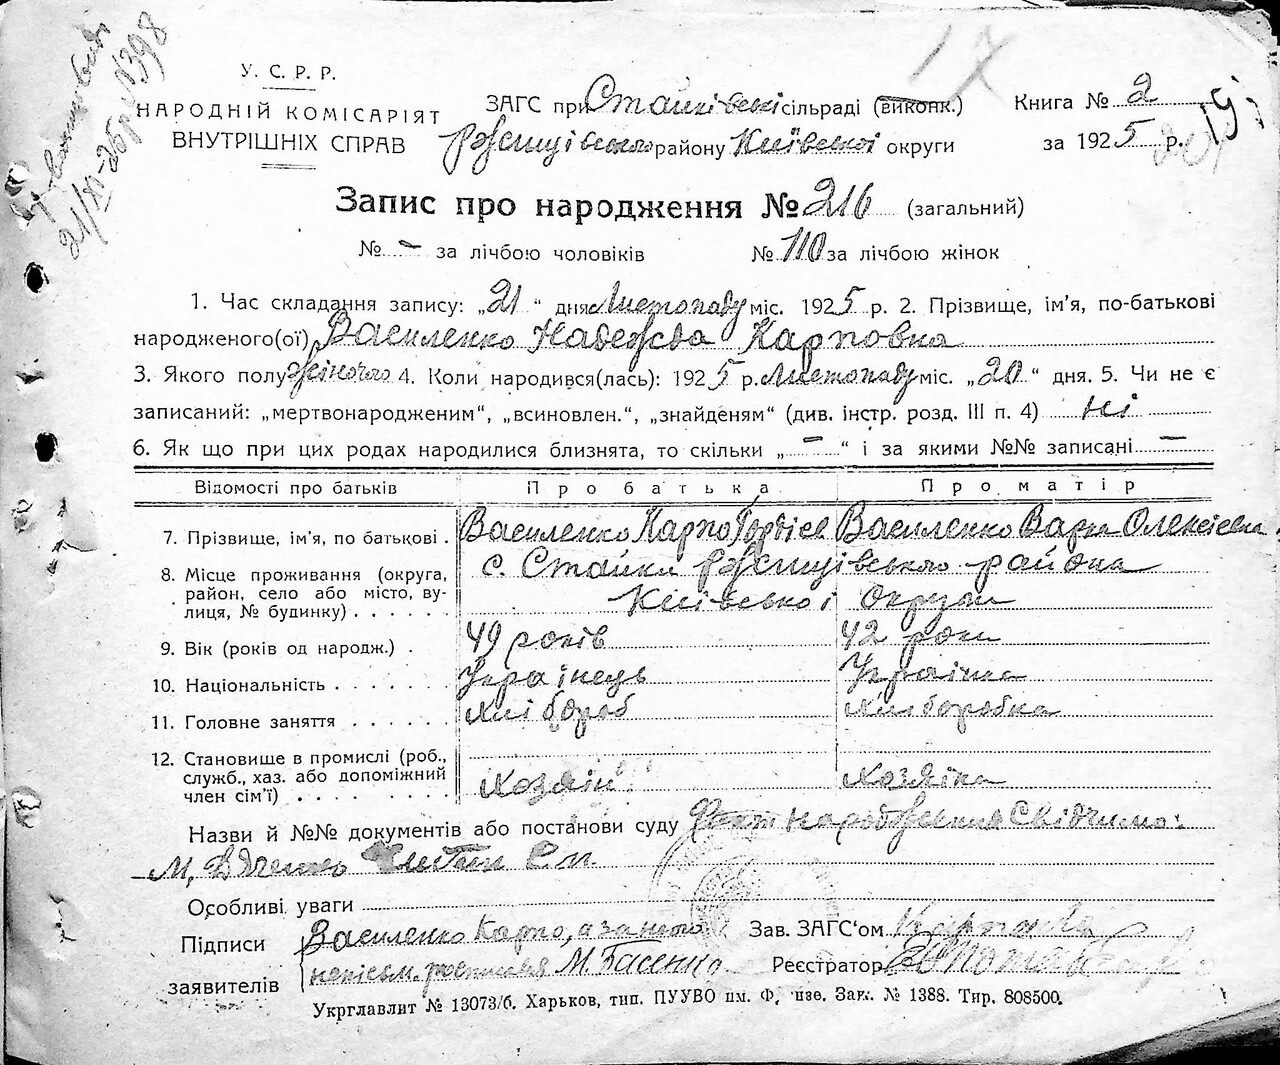 У. С. Р. Р.
НАРОДНІЙ КОМІСАРІЯТ
ВНУТРІШНІХ СПРАВ
21/XI-25р. №398
ЗАГС при Стайківскі сільраді (виконк.)
Ржищівського району Київської округи
Книга № 2
за 1925 р.
Запис про народження № 216 (загальний)
№ – за лічбою чоловіків № 110 за лічбою жінок
1. Час складання запису: „21“ дня Листопаду міс. 1925 р. 2. Прізвище, ім'я, по-батькові
народженого(ої) Василенко Надежда Карповна
3. Якого полу жіночого 4. Коли народився(лась): 1925 р. Листопаду міс. „20“ дня. 5. Чи не є
записаний: „мертвонародженим“, „всиновлен.“, „знайденям“ (див. інстр. розд. III п. 4) ні
6. Як що при цих родах народилися близнята, то скільки „–“ і за якими №№ записані –
Відомості про батьків Про батька Про матір
7. Прізвище, ім'я, по батькові . Василенко Карпо Гордієв Василенко Варка Олексієвна
8. Місце проживання (округа, с. Стайки Ржищівського района
район, село або місто, ву- Київської округи
лиця, № будинку) . . . . .
9. Вік (років од народж.) . 49 років 42 роки
10. Національність . . . . . . . Українець Українка
11. Головне заняття . . . . . . Хлібороб Хлиборобка
12. Становище в промислі (роб.,
служб., хаз. або допоміжний Хозяїн Хозяїка
член сім'ї) . . . . . . . .
Назви й №№ документів або постанови суду Факт народження Свідчимо:
М. Дяченко
Особливі уваги
Підписи Василенко Карпо, а за його
заявителів непісьм. росписався М. Басенко
Зав. ЗАГС'ом
Реєстратор
Укрглавлит № 13073/б. Харьков, тип. ПУУВО им. Фрунзе. Зак. № 1388. Тир. 808500.